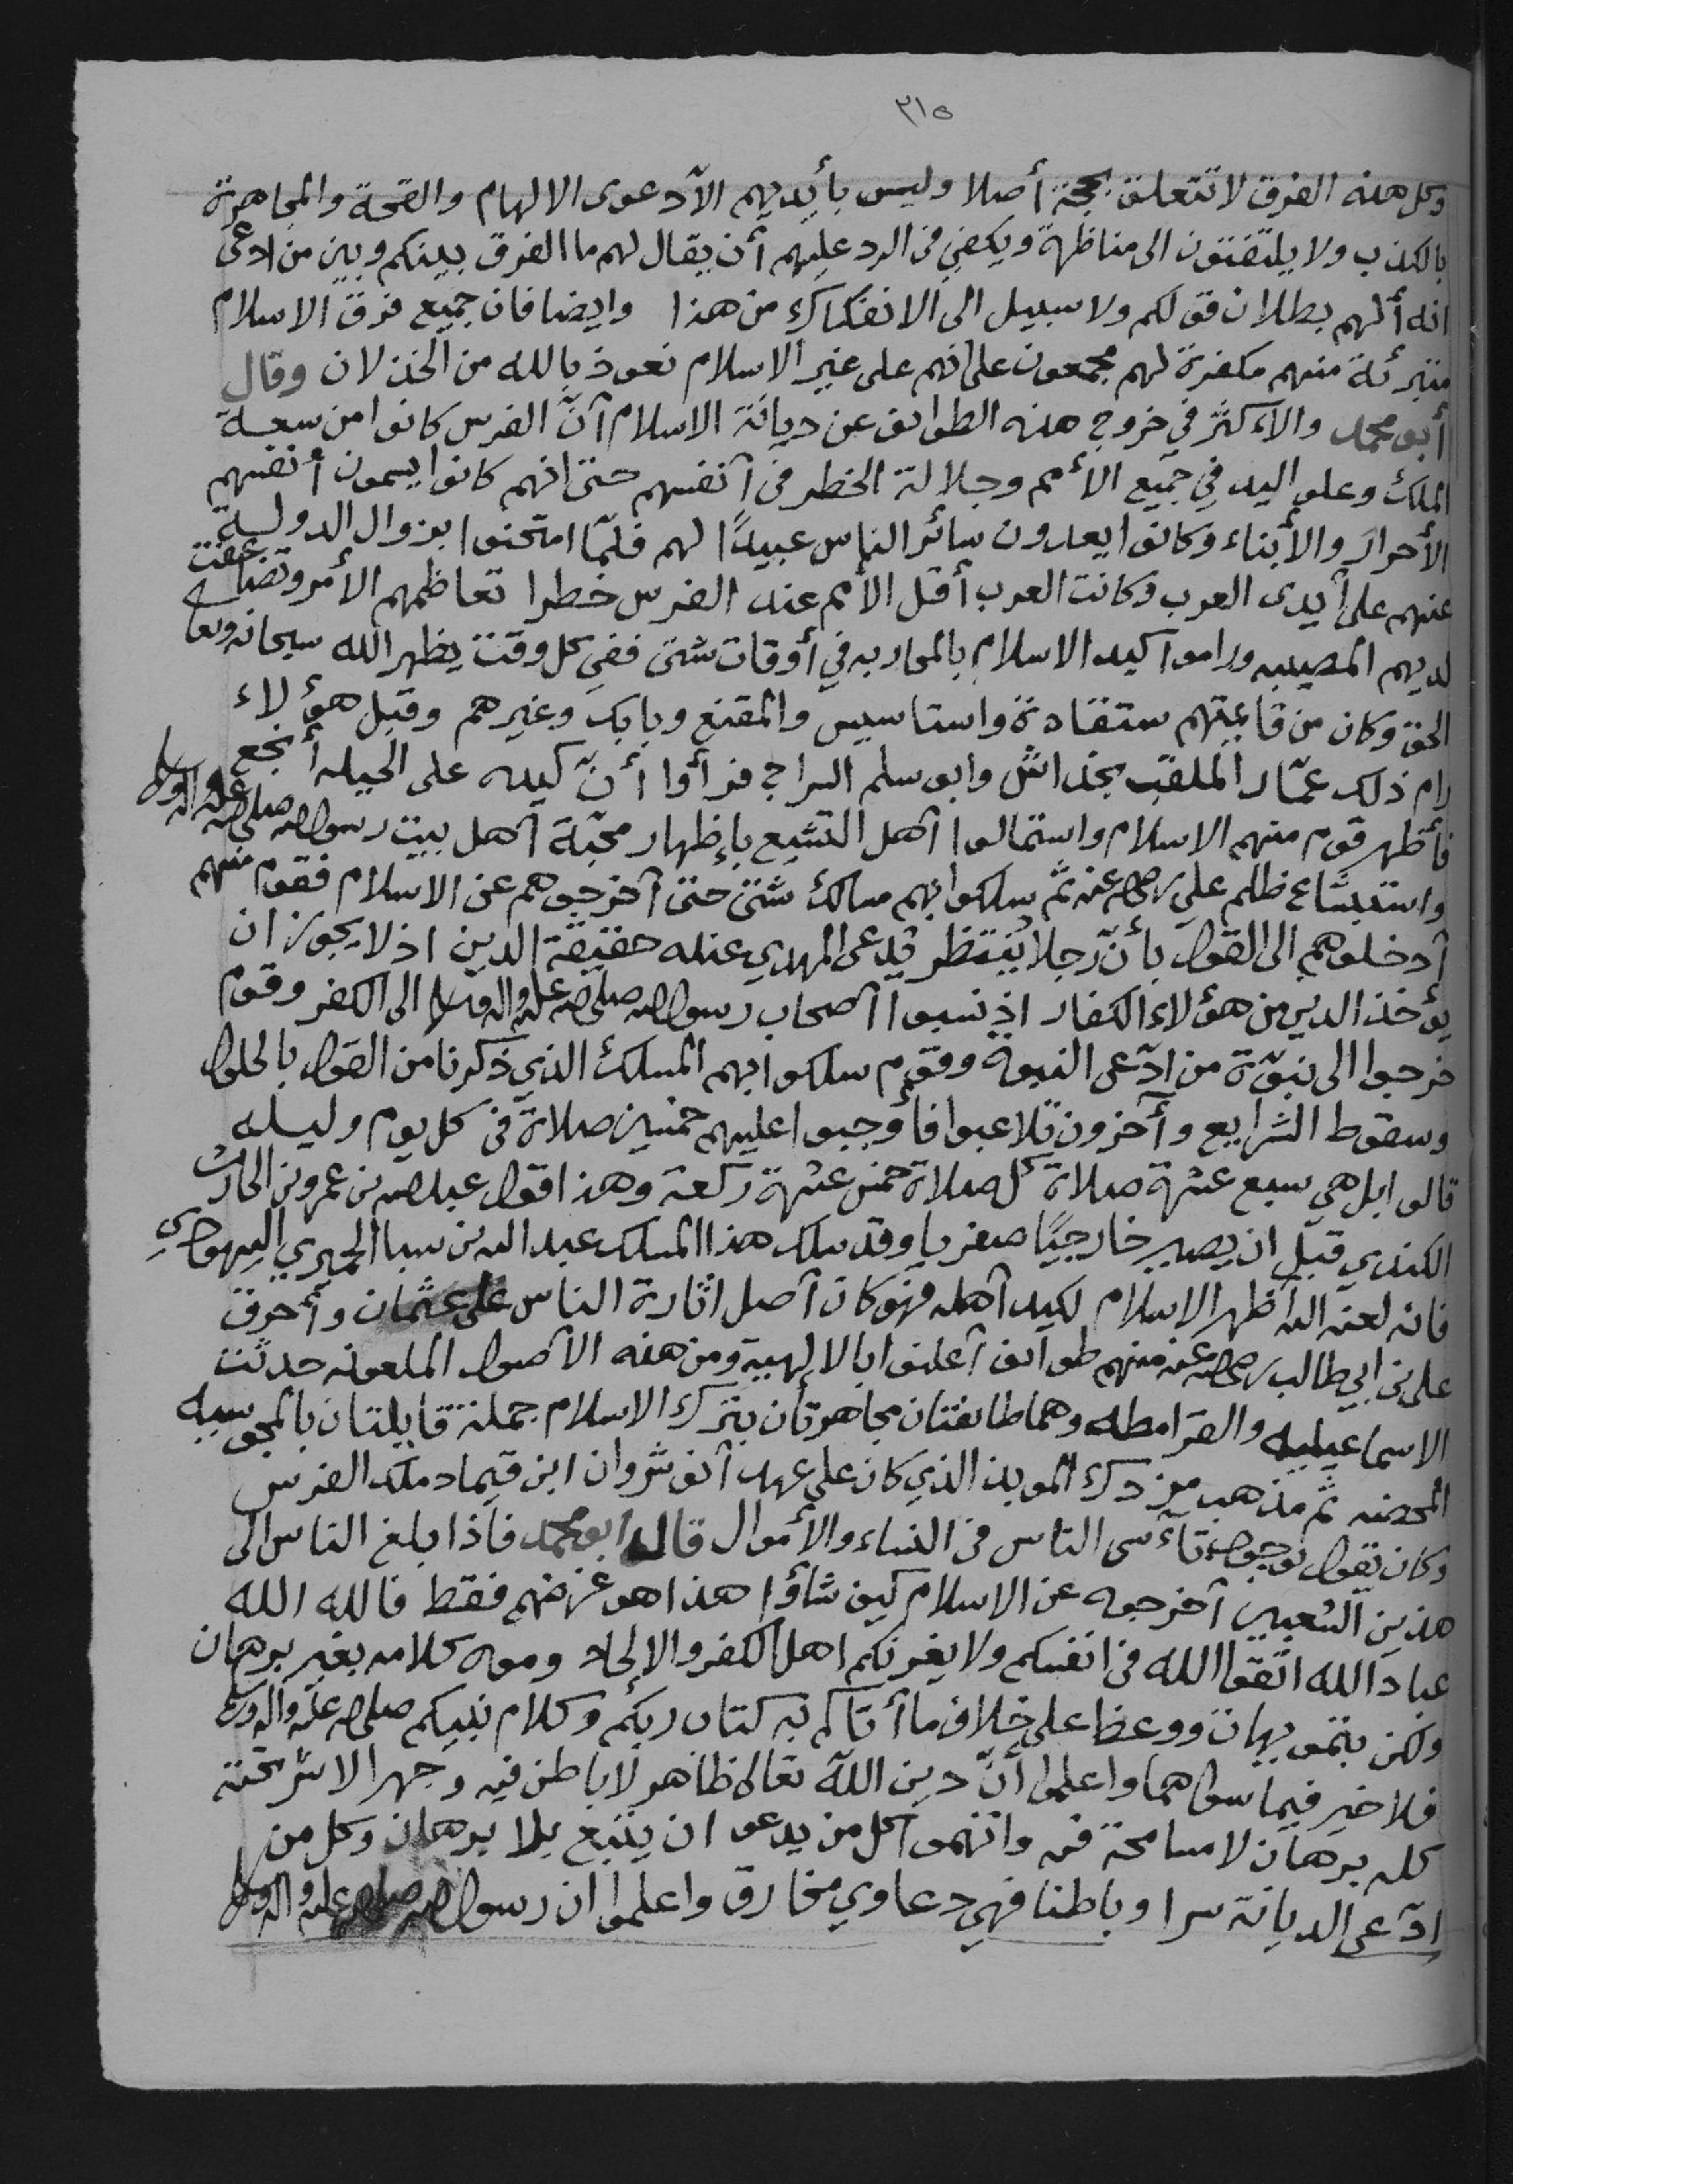 ٣١٥
وكل هذه الفرق لا تتعلق بحجة أصلا وليس بأيديهم الا دعوى الالهام والقحة والمجاهرة
بالكذب ولا يلتفتون الى مناظرة ويكفي في الرد عليهم أن يقال لهم ما الفرق بينكم وبين من ادعى
انه ألهم بطلان قولكم ولا سبيل الى الانفكاك من هذا وايضا فان جميع فرق الاسلام
متبرئة منهم مكفرة لهم مجمعون على انهم على غير الاسلام نعوذ بالله من الخذلان وقال
أبو محمد والأكثر في خروج هذه الطوائف عن ديانة الاسلام أنّ الفرس كانوا من سعة
الملك وعلو اليد في جميع الأمم وجلالة الخطر في أنفسهم حتى انهم كانوا يسمون أنفسهم
الأحرار والأبناء وكانوا يعدون سائر الناس عبيدًا لهم فلمّا امتحنوا بزوال الدولة
عنهم على أيدى العرب وكانت العرب أقل الأمم عند الفرس خطرا تعاظمهم الأمر وتضاعفت
لديهم المصيبه وراموا كيد الاسلام بالمحاربه في أوقات شتى ففي كل وقت يظهر الله سبحانه وتعا
الحق وكان من قائمتهم ستقادة واستاسيس والمقنع وبابك وغيرهم وقبل هؤلاء
رام ذلك عمّار الملقب بخداش وابو سلم السراج فرأوا أنّ كيده على الحيله أنجع
فأظهر قوم منهم الاسلام واستمالوا أهل التشيع بإظهار محبّة أهل بيت رسول الله صلى الله عليه واله وسلم
واستبشاع ظلم علي رضى الله عنه ثم سلكوا بهم مسالك شتى حتى أخرجوهم عن الاسلام فقوم منهم
أدخلوهم الى القول بأنّ رجلا يُنتظر يدعى المهدي عنده حقيقة الدين اذ لا يجوز ان
يؤخذ الدين من هؤلاء الكفار اذ نسبوا أصحاب رسول الله صلى الله عليه واله وسلم الى الكفر وقوم
خرجوا الى نبوّة من ادّعى النبوة وقوم سلكوا بهم المسلك الذي ذكرنا من القول بالحلول
وسقوط الشرايع وآخرون تلاعبوا فأوجبوا عليهم خمسين صلاة في كل يوم وليله
قالوا بل هي سبع عشرة صلاة كل صلاة خمس عشرة ركعة وهذا قول عبد الله بن عمرو بن الحارث
الكندي قبل ان يصير خارجيًا صفريا وقد سلك هذا المسلك عبد الله بن سبا الحميري اليهودي
فانه لعنه الله أظهر الاسلام لكيد أهله فهو كان أصل اثارة الناس على عثمان وأحرق
على بن ابي طالب رضى الله عنه منهم طوائف أعلنوا بالالهية ومن هذه الأصول الملعونه حدثت
الاسماعيليه والقرامطه وهما طائفتان مجاهرتان بترك الاسلام جملة قايلتان بالمجوسيه
المحضه ثم مذهب مزدك الموبذ الذي كان على عهد أنوشروان ابن قيماد ملك الفرس
وكان يقول بوجوب تأسى الناس في النساء والأموال قال ابو محمد فاذا بلغ الناس الى
هذين الشعبين أخرجوه عن الاسلام كيف شاؤا هذا هو غرضهم فقط فالله الله
عباد الله اتقوا الله في انفسكم ولا يغرنكم اهل الكفر والالحاد وموه كلامه بغير برهان
ولكن بتمويهات ووعظ على خلاف ما أتاكم به كتاب ربكم وكلام نبيكم صلى الله عليه واله وسلم
فلا خير فيما سواهما واعلموا أنّ دين الله تعالى ظاهر لا باطن فيه وجهر لا سر تحته
كله برهان لا مسامحة فيه واتهموا كل من يدعو ان يتبع بلا برهان وكل من
ادّعى الديانة سرا وباطنا فهي دعاوي مخارق واعلموا ان رسول الله صلى الله عليه واله وسلم